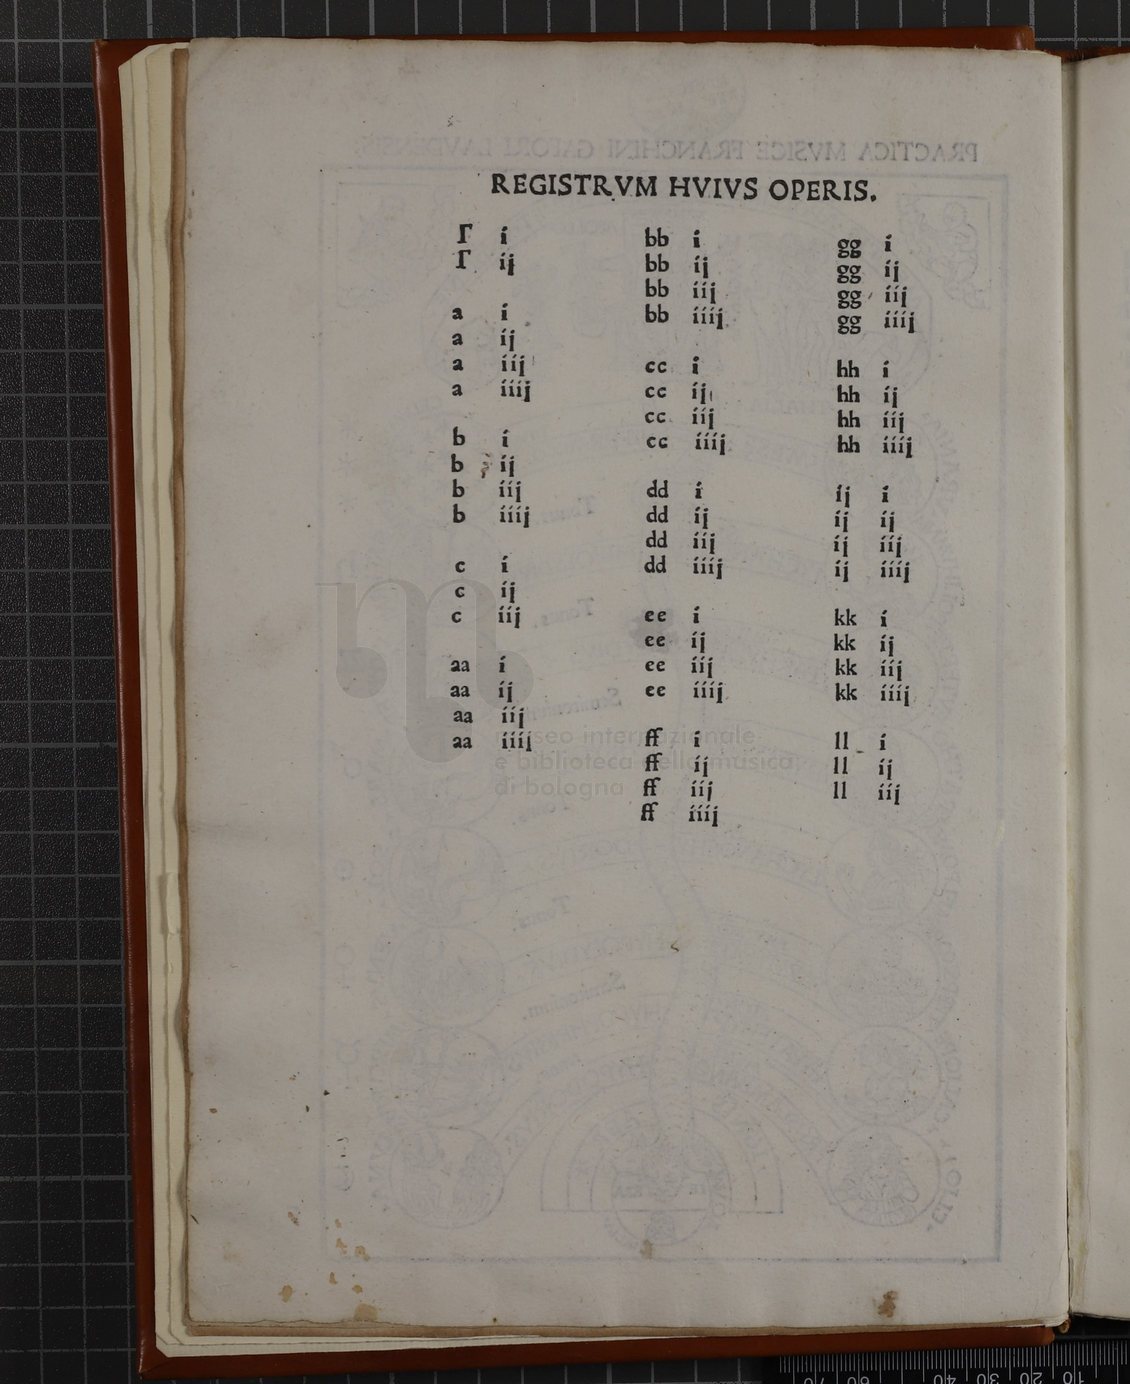 PRACTICA MVSICE FRANCHINI GAFORI LAVDENSIS.
REGISTRVM HVIVS OPERIS.
Γ i
Γ ij
a i
a ij
a iij
a iiij
b i
b ij
b iij
b iiij
c i
c ij
c iij
aa i
aa ij
aa iij
aa iiij
bb i
bb ij
bb iij
bb iiij
cc i
cc ij
cc iij
cc iiij
dd i
dd ij
dd iij
dd iiij
ee i
ee ij
ee iij
ee iiij
ff i
ff ij
ff iij
ff iiij
gg i
gg ij
gg iij
gg iiij
hh i
hh ij
hh iij
hh iiij
ij i
ij ij
ij iij
ij iiij
kk i
kk ij
kk iij
kk iiij
ll i
ll ij
ll iij
museo internazionale
e biblioteca della musica
di bologna